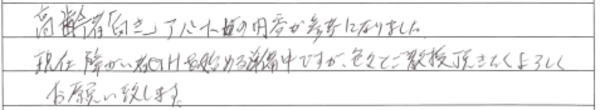 高齢者「向き」アパート上の内容が参考になりました。
現在障がい者GHを始める準備中ですが、色々とご教授頂きたくよろしく
お願い致します。